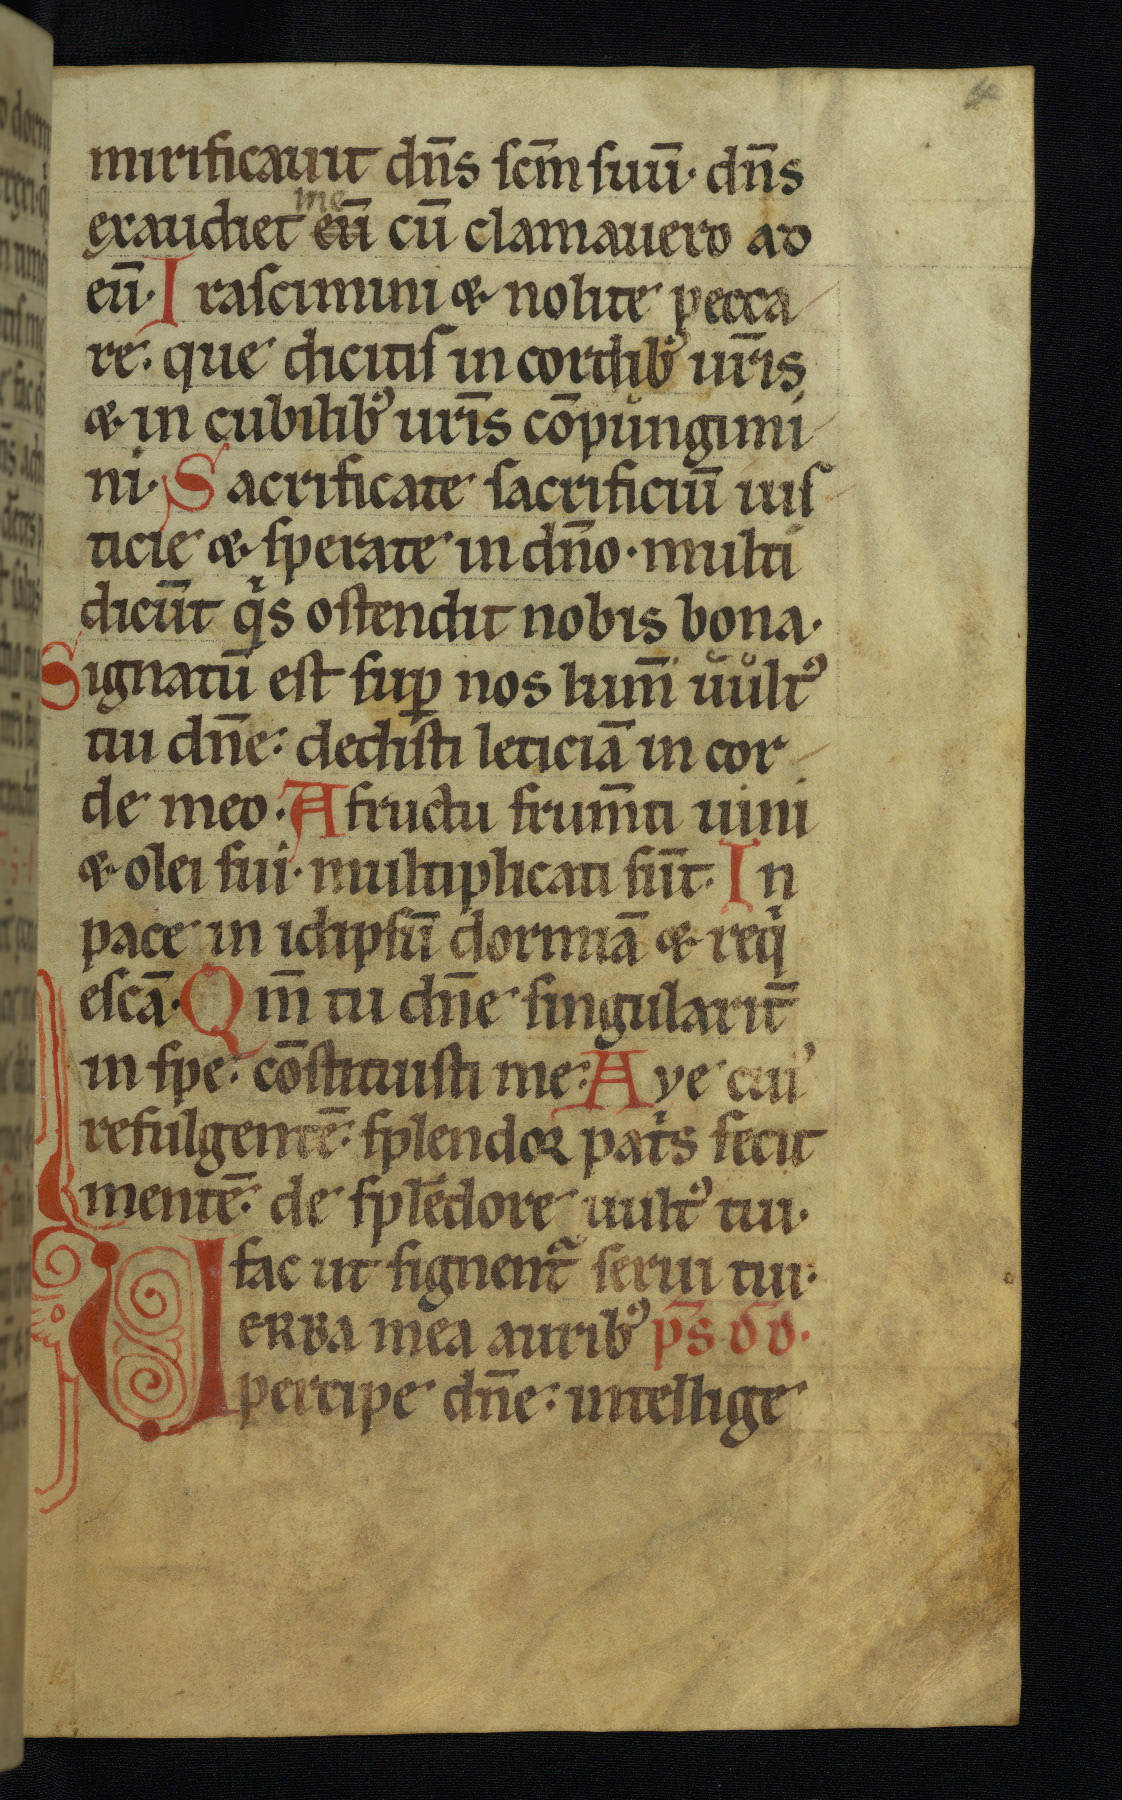 4
mirificauit dn̄s sc̄m suū· dn̄s
me
exaudiet eū cū clamauero ad
eū· Irascimini & nolite pecca
re: que dicitis in cordib⁹ ur̄is
& in cubilib⁹ ur̄is cōpungimi
ni· Sacrificate sacrificiū ius
ticie & sperate in dn̄o· multi
dicūt qͥs ostendit nobis bona·
Signatū est suꝑ nos lum̄ uult⁹
tui dn̄e: dedisti leticiā in cor
de meo· A fructu frum̄ti uini
& olei sui· multiplicati sūt· In
pace in idipsū dormiā & reqͥ
escā· Qm̄ tu dn̄e singularit̄
in spe: cōstituisti me: Aye cui⁹
refulgentē: splendor patͥs fecit
mentē· de splēdore uult⁹ tui·
fac ut signent᷑ serui tui·
Uerba mea aurib⁹ p̄s dd·
percipe dn̄e: intellige